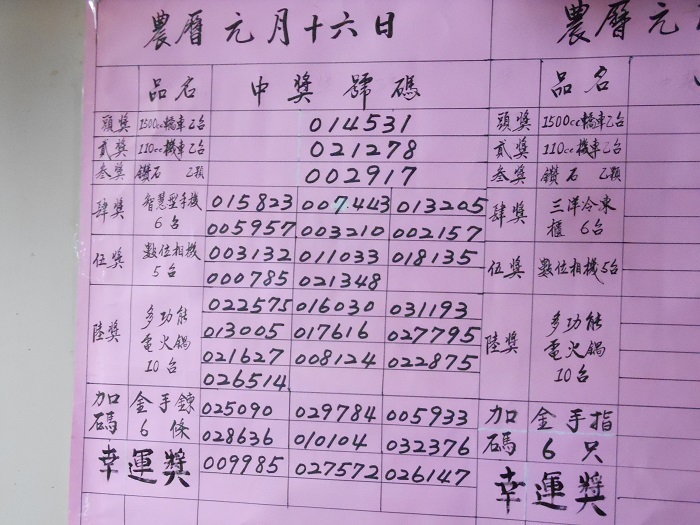 農曆元月十六日
品名 中獎號碼
頭獎 1500cc轎車乙台 014531
貳獎 110cc機車乙台 021278
叁獎 鑽石 乙顆 002917
肆獎 智慧型手機 6台 015823 007443 013205
005957 003210 002157
伍獎 數位相機 5台 003132 011033 018135
000785 021348
陸獎 多功能電火鍋 10台 022575 016030 031193
013005 017616 027795
021627 008124 022875
026514
加碼 金手鍊 6條 025090 029784 005933
028636 010104 032376
幸運獎 009985 027572 026147
農曆元
品名
頭獎 1500cc轎車乙台
貳獎 110cc機車乙台
叁獎 鑽石 乙顆
肆獎 三洋冷凍櫃 6台
伍獎 數位相機5台
陸獎 多功能電火鍋 10台
加碼 金手指 6只
幸運獎